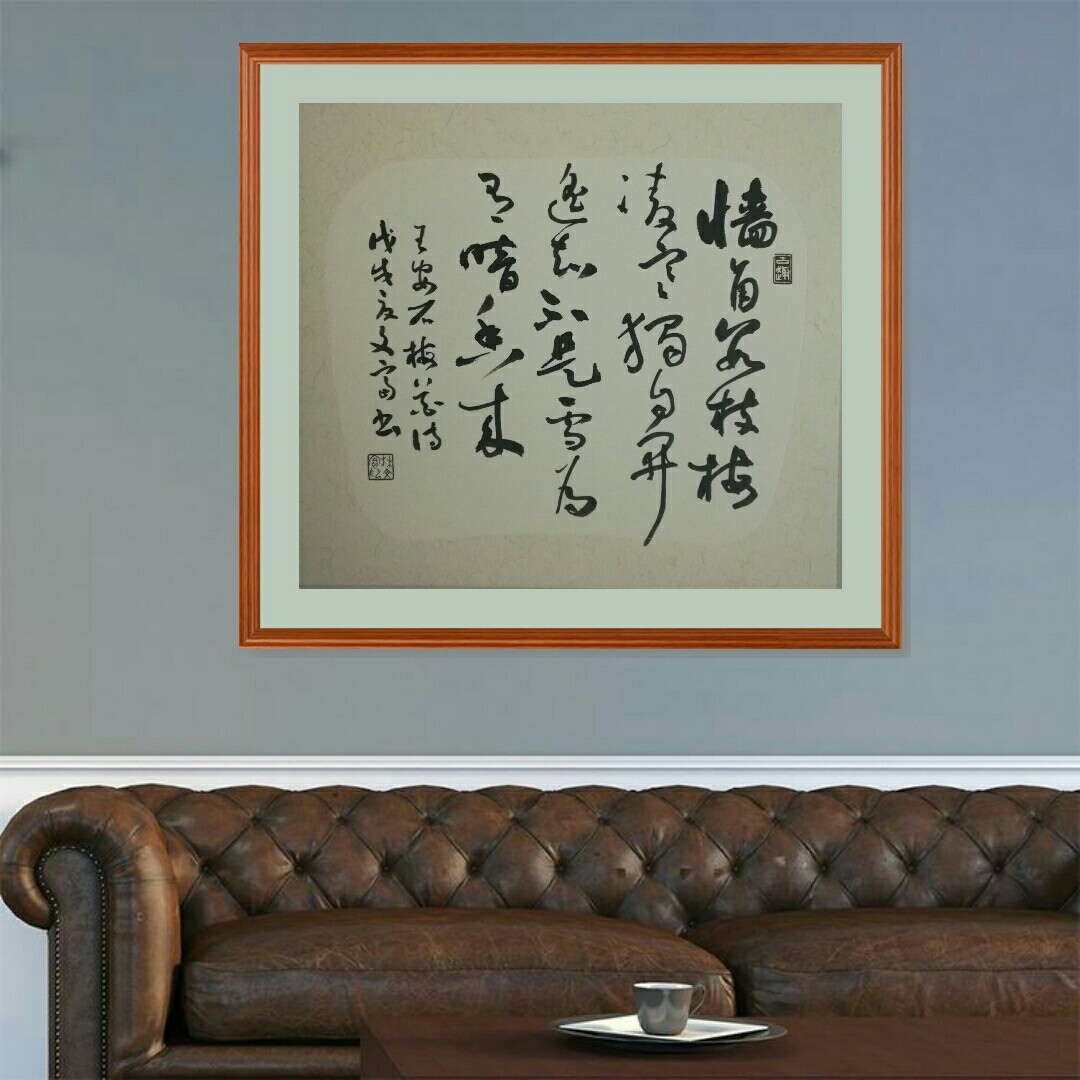 墙角数枝梅
凌寒獨自开
遥知不是雪为
有暗香来
王安石梅花诗
戊戌夏文富书